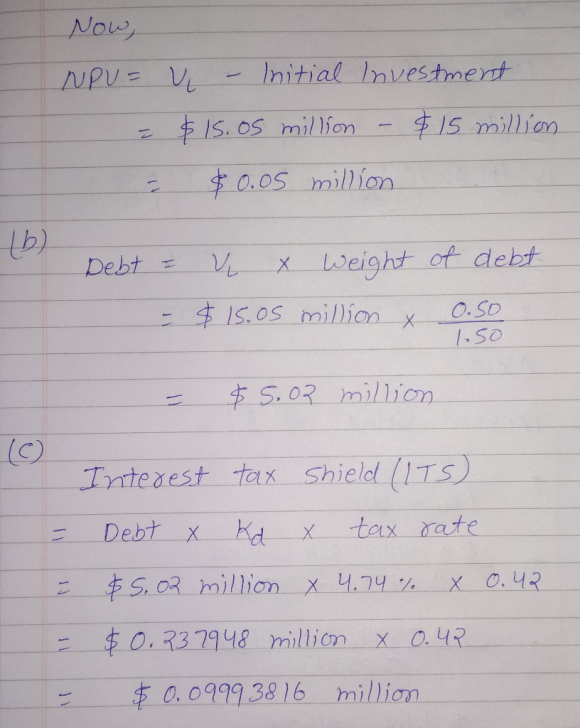 Now,
NPV = VL - Initial Investment
= $ 15.05 million - $ 15 million
= $ 0.05 million
(b)
Debt = VL x Weight of debt
= $ 15.05 million x 0.50
1.50
= $ 5.02 million
(c)
Interest tax shield (ITS)
= Debt x Kd x tax rate
= $ 5.02 million x 4.74 % x 0.42
= $ 0.237948 million x 0.42
= $ 0.09993816 million